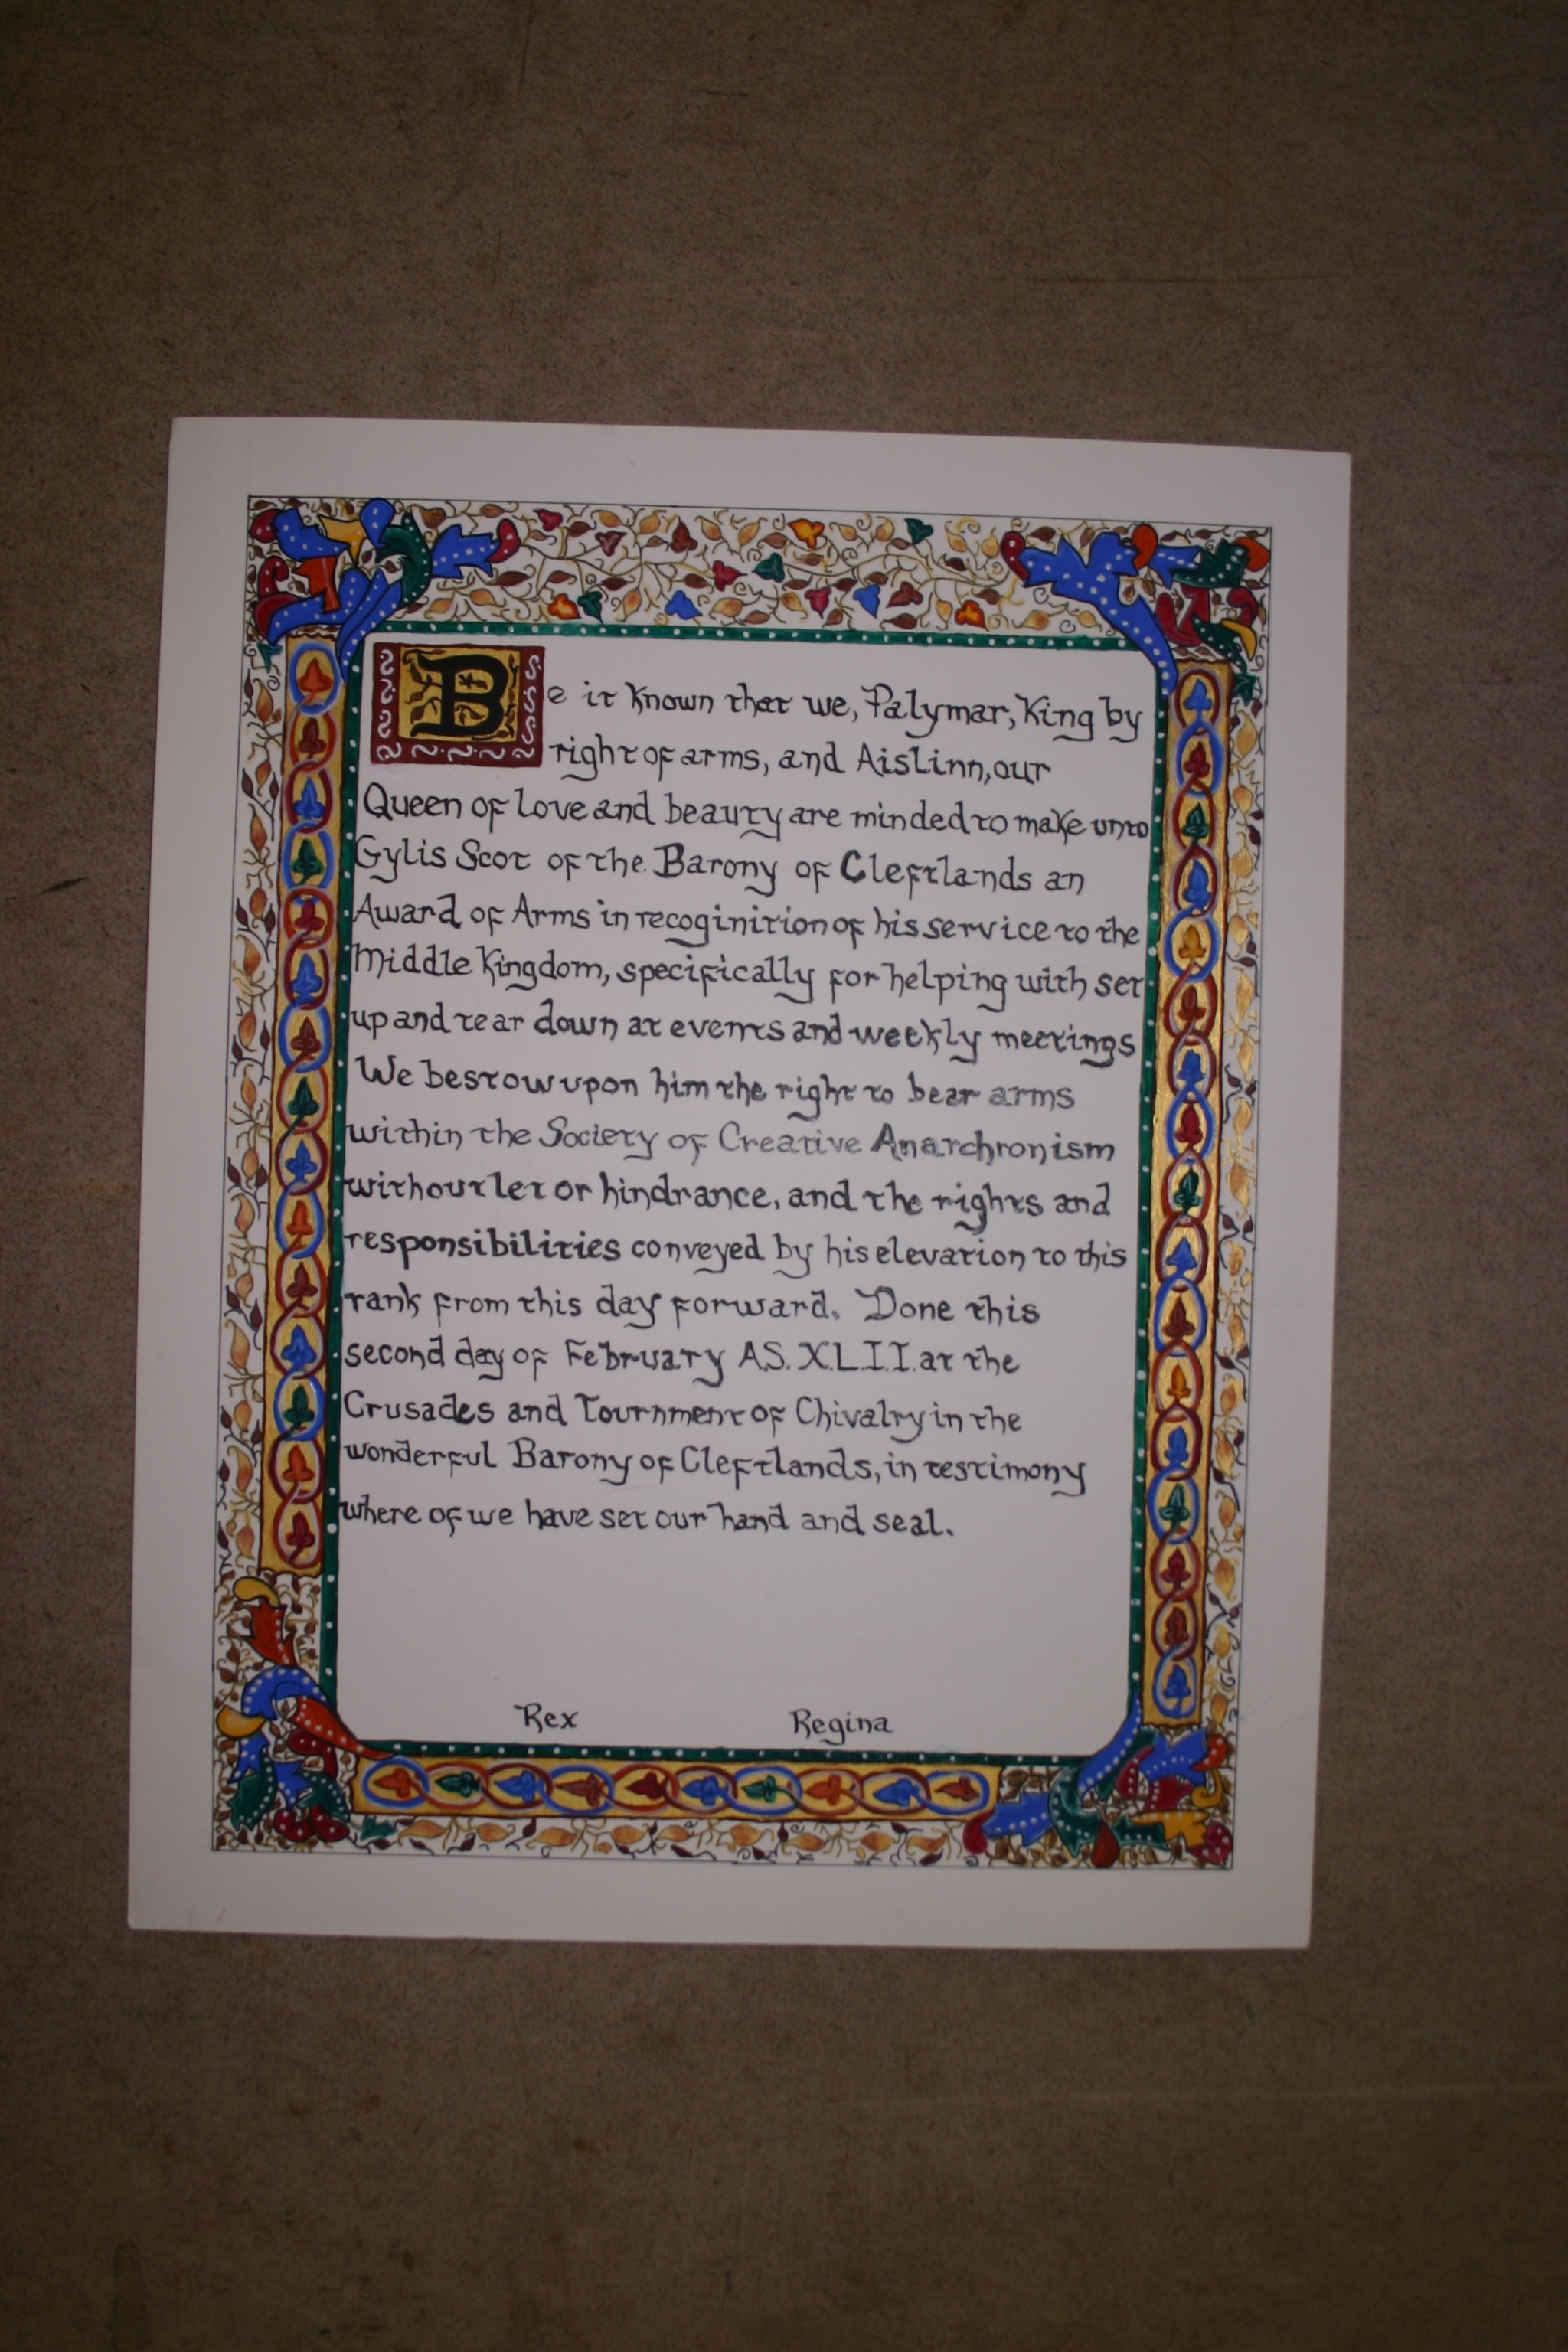 Be it known that we, Palymar, King by
right of arms, and Aislinn, our
Queen of love and beauty are minded to make unto
Gylis Scot of the Barony of Cleftlands an
Award of Arms in recoginition of his service to the
Middle Kingdom, specifically for helping with set
up and tear down at events and weekly meetings
We bestow upon him the right to bear arms
within the Society of Creative Anarchronism
without let or hindrance, and the rights and
responsibilities conveyed by his elevation to this
rank from this day forward. Done this
second day of February A.S. X.L.I.I. at the
Crusades and Tournment of Chivalry in the
wonderful Barony of Cleftlands, in testimony
where of we have set our hand and seal.
Rex Regina